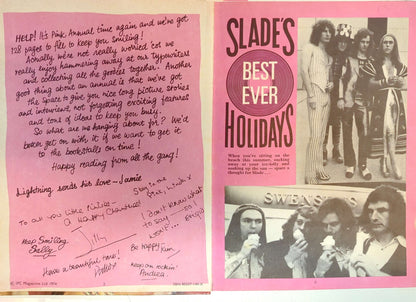 HELP! It's Pink Annual time again and we've got
128 pages to fill to keep you smiling!
Actually we're not really worried 'cos we
really enjoy hammering away at our typewriters
and collecting all the goodies together. Another
good thing about an annual is that we've got
the space to give you nice long picture stories
and interviews, not forgetting exciting features
and tons of ideas to keep you busy.
So what are we hanging about for? We'd
better get on with it if we want to get it
to the bookstalls on time!
Happy reading from all the gang!
Lightning sends his love — Jamie
To all you little
A Happy Christmas!
Jilly
Stay in the
I don't know what
to say
Keep Smiling
Sally
Be happy
Kim
Have a beautiful time!
Keep on rockin'
Andrea
SLADE'S
BEST
EVER
HOLIDAYS
When you're sitting on the
beach this summer, soaking
away at your
and soaking up the sun — spare a
thought for Slade...
SWENSEN'S